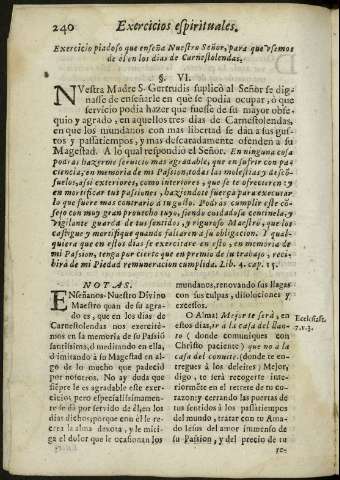 240 Exercicios espirituales.
Exercicio piadoso que enseña Nuestro Señor, para que vsemos
de el en los dias de Carnestolendas.
§. VI.
NVestra Madre S. Gertrudis suplicò al Señor se dig-
nasse de enseñarle en què se podia ocupar, ò que
servicio podia hazer que fuesse de su mayor obse-
quio y agrado, en aquellos tres dias de Carnestolendas,
en que los mundanos con mas libertad se dàn a sus gus-
tos y passatiempos, y mas descaradamente ofenden a su
Magestad. A lo qual respondiò el Señor. En ninguna cosa
podras hazerme servicio mas agradable, que en sufrir con pa-
ciencia, en memoria de mi Passion, todas las molestias y desco-
suelos, assi exteriores, como interiores, que se te ofrecieren; y
en mortificar tus passiones, haziendote fuerça para executar
lo que fuere mas contrario a tu gusto. Podras cumplir este cõ-
sejo con muy gran provecho tuyo, siendo cuidadosa centinela, y
vigilante guarda de tus sentidos, y riguroso Maestro, que los
castigue y mortifique quando faltaren a su obligacion. Y qual-
quiera que en estos dias se exercitare en esto, en memoria de
mi Passion, tenga por cierto que en premio de su trabajo, reci-
birà de mi Piedad remuneracion cumplida. Lib. 4. cap. 15.
NOTAS.
ENseñanos Nuestro Divino
Maestro quan de su agra-
do es, que en los dias de
Carnestolendas nos exercitè-
mos en la memoria de su Passiõ
santissima, ò meditando en ella,
ò imitando à su Magestad en al-
go de lo mucho que padeciò
por nosotros. No ay duda que
siẽpre le es agradable este exer-
cicio pero especialissimamen-
te se dà por servido dèl, en los
dias dichos; porque con èl le re-
crea la alma devota, y le miti-
ga el dolor que le ocasionan los
mundanos, renovando sus llagas
con sus culpas, disoluciones y
excessos.
O Alma! Mejor te serà, en
estos dias, ir a la casa del llan-
to (donde comuniques con
Christo paciente) que no a la
casa del convite. (donde te en-
tregues à los deleites) Mejor,
digo, te serà recogerte inte-
riormẽte en el retrete de tu co-
razon; y cerrando las puertas de
tus sentidos à los passatiempos
del mundo, tratar con tu Ama-
do Iesus del amor immenso de
su Passion, y del precio de tu
Ecclesiast.
7. v. 3.
re-